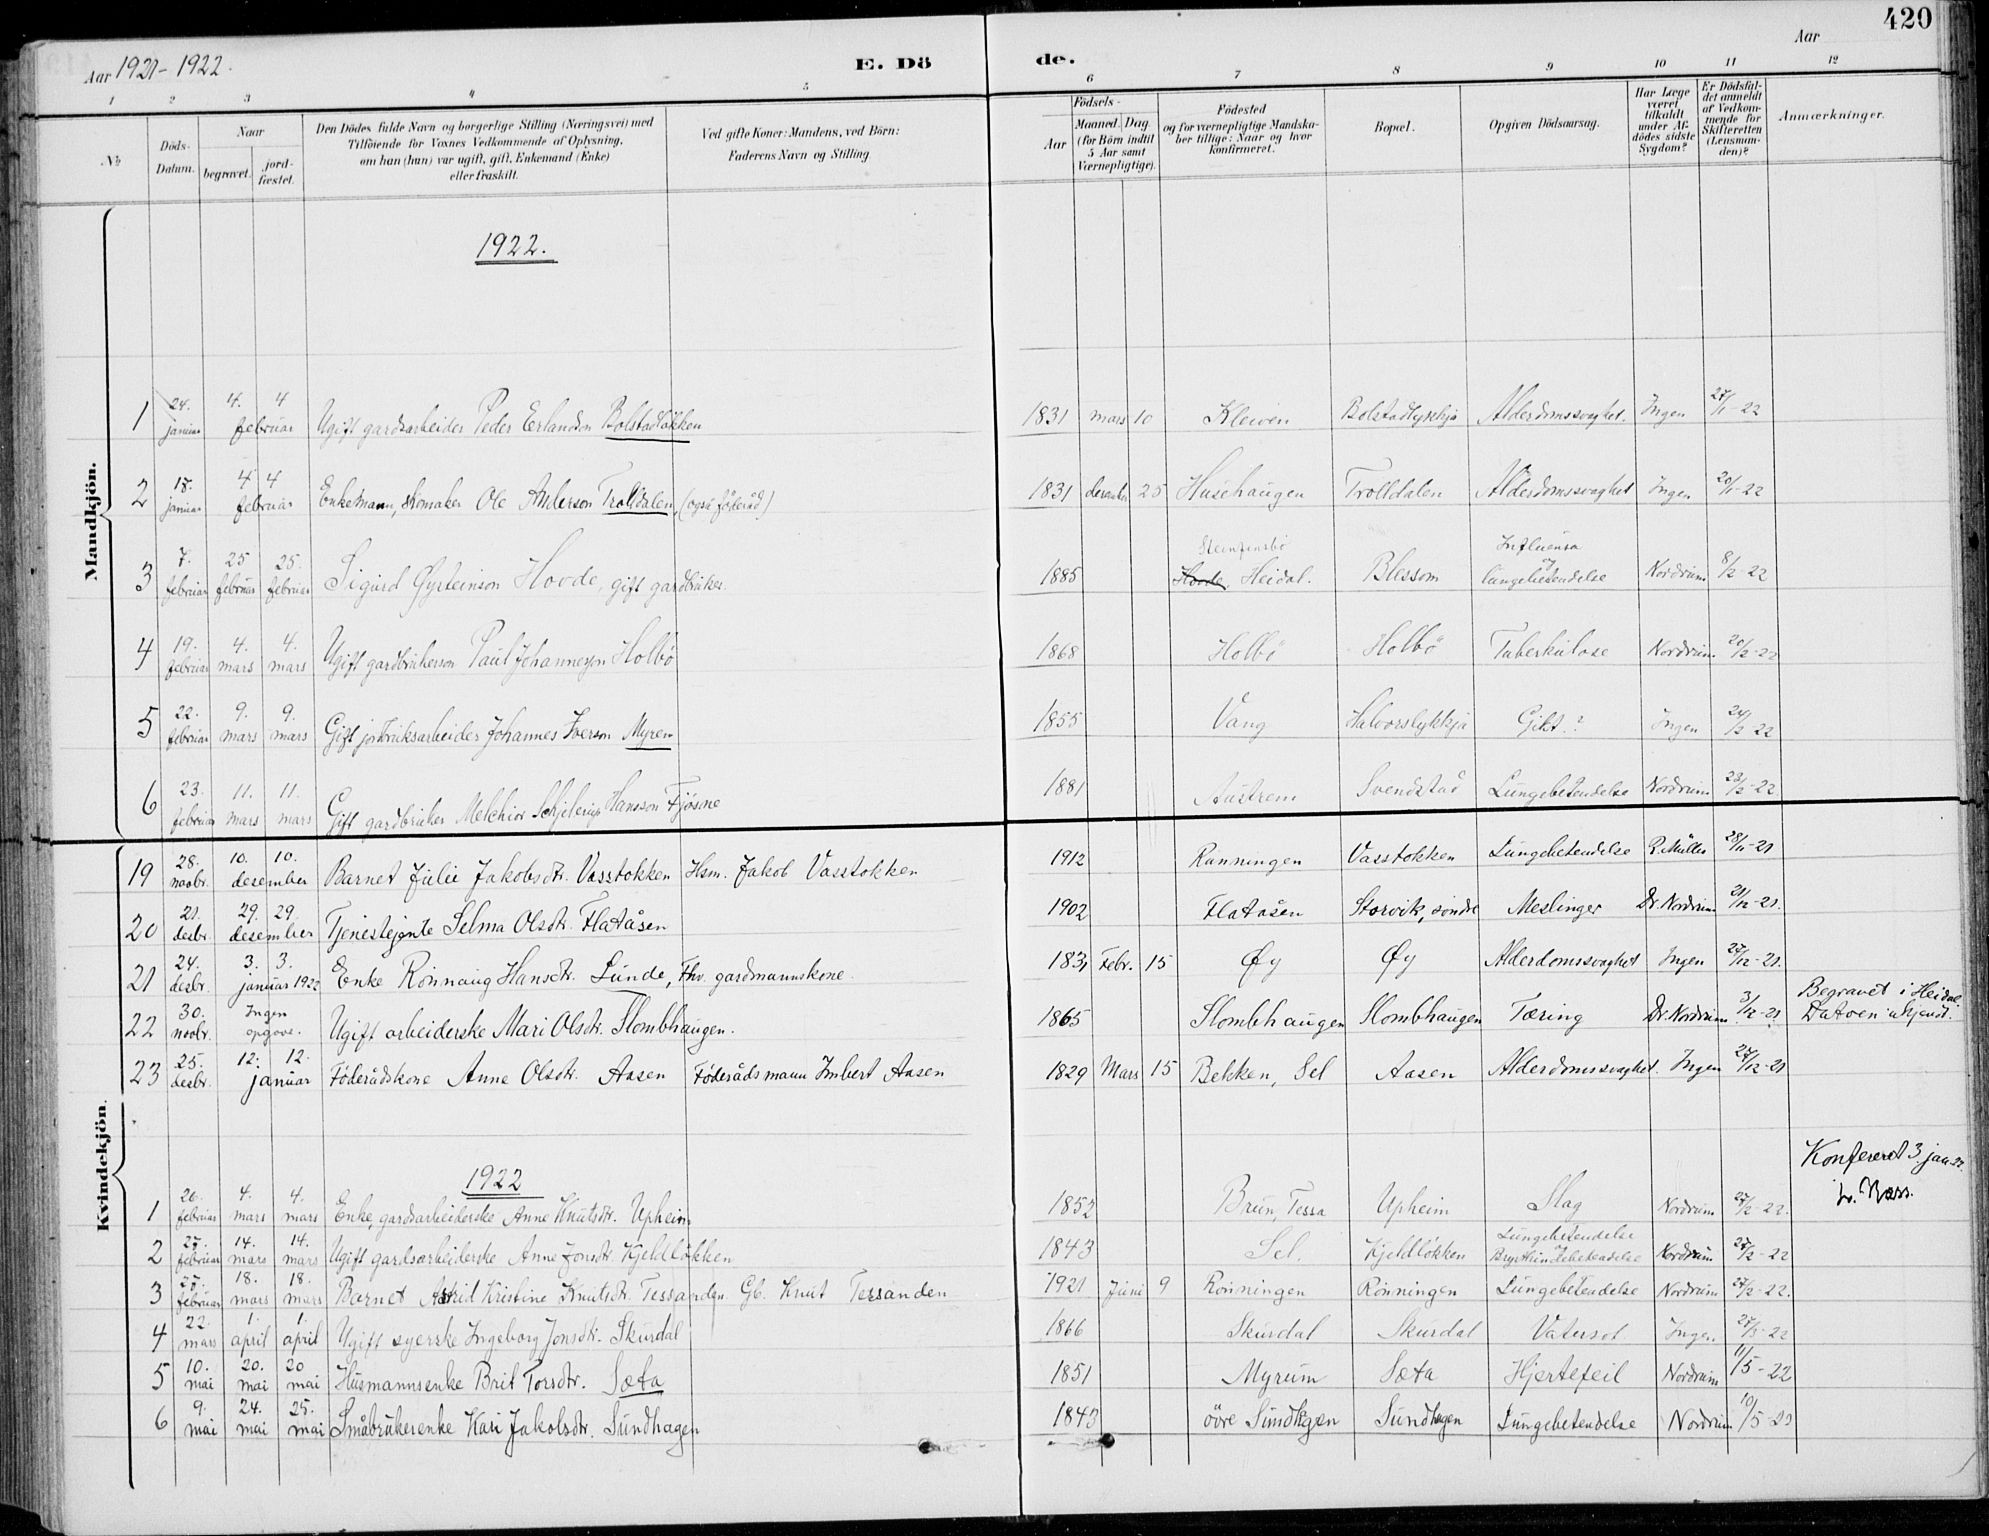 420
Aar 1921-1922.
E. Dö
de.
Aar
1 2 3 4 5 6 7 8 9 10 11 12
No
Döds-Datum.
Naar
begravet.
jord-fæstet.
Den Dödes fulde Navn og borgerlige Stilling (Næringsvei) med
Tilföiende for Voxnes Vedkommende af Oplysning,
om han (hun) var ugift, gift, Enkemand (Enke)
eller fraskilt.
Ved gifte Koner: Mandens, ved Börn:
Faderens Navn og Stilling.
Födsels-
Aar
Maaned. Dag.
(for Börn indtil
5 Aar samt
Værnepligtige).
Födested
og for værnepligtige Mandska-
ber tillige: Naar og hvor
konfirmeret.
Bopæl.
Opgiven Dödsaarsag.
Har Læge
været
tilkaldt
under Af-
dödes sidste
Sygdom?
Er Dödsfal-
det anmeldt
af Vedkom-
mende for
Skifteretten
(Lensman-
den)?
Anmærkninger.
Mandkjön.
1922.
1 24. januar 4. 4 februar Ugift gardsarbeider Peder Erlandson Bolstadløkken 1831 mars 10 Kleiven Bolstadlykkja Alderdomssvaghet. Ingen 27/1-22
2 18. januar 4 4 februar Enkemann, skomaker Ole Anderson Trolldalen, (også föderåd) 1831 desember 25 Husehaugen Trolldalen Alderdomssvaghet Ingen 20/1-22
3 7. februar 25 februar 25. februar Sigurd Øysteinson Hovde, gift gardbruker. 1885 Steinfinsbö Hovde, Heidal. Blessom Influensa og lungebetendelse Nordrum 8/2-22
4 19. februar 4. mars 4. mars Ugift gardbrukerson Paul Johannesson Holbö 1868 Holbö Holbö Tuberkulose Nordrum 20/2-22
5 22. februar 9. mars 9. mars Gift jordbruksarbeider Johannes Iverson Myren 1855 Vang Halvorslykkja Gikt.? Ingen 24/2-22
6 23. februar 11. mars 11. mars Gift gardbruker Melchior Schjelerup Hansson Fjösne 1881 Austrem Svendstad Lungebetendelse Nordrum 23/2-22
Kvindekjön.
19 28. novbr. 10. 10. desember Barnet Julie Jakobsdtr. Vasstokken Hsm. Jakob Vasstokken 1912 Rönningen Vasstokken Lungebetendelse R. Müller 28/11-21
20 21. desbr. 29. 29. desember Tjenestejente Selma Olsdtr. Flatåsen 1902 Flatåsen Storvik, söndre Meslinger Dr. Nordrum 21/12-21.
21 24. desbr. 3. 3. januar 1922 Enke Rönnaug Hansdtr. Lunde, Fhv. gardmannskone. 1831 Febr. 15 Øy Øy Alderdomssvaghet Ingen 27/12-21.
22 30. novbr. Ingen opgave. Ugift arbeiderske Mari Olsdtr. Slombhaugen. 1865 Slombhaugen Slombhaugen Tæring Dr. Nordrum 3/12-21 Begravet i Heidal. Datoen ukjendt.
23 25. desbr. 12. 12. januar Föderådskone Anne Olsdtr. Aasen Föderådsmann Imbert Aasen 1829 Mars 15 Bekken, Sel Aasen Alderdomssvaghet. Ingen 27/12-21
Konfereret 3. jan. 22.
1922
1 26. februar 4. mars 4. mars Enke, gardsarbeiderske Anne Knutsdtr. Upheim 1852 Brun, Tessa Upheim Slag Nordrum 27/2-22.
2 27. februar 14. mars 14. mars Ugift gardsarbeiderske Anne Jonsdtr. Kjeldløkken 1843 Sel. Kjeldløkken Lungebetendelse Nordrum 27/2-22
3 27. februar 18. mars 18. mars Barnet Astrid Kristine Knutsdtr. Tessanden Gb. Knut Tessanden 1921 Juni 9 Rönningen Rönningen Lungebetendelse Nordrum 27/2-22.
4 22. mars 1. april 1. april Ugift syerske Ingeborg Jonsdtr. Skurdal 1866 Skurdal Skurdal Vatersot Ingen 27/3-22
5 10. mai 20. mai 20 mai Husmannsenke Brit Torsdtr. Sæta 1851 Myrum Sæta Hjertefeil Nordrum 11/5-22
6 9. mai 24. mai 25. mai Småbrukerenke Kari Jakobsdtr. Sundhagen 1843 övre Sundhgen Sundhagen Lungebetendelse Nordrum 10/5-22